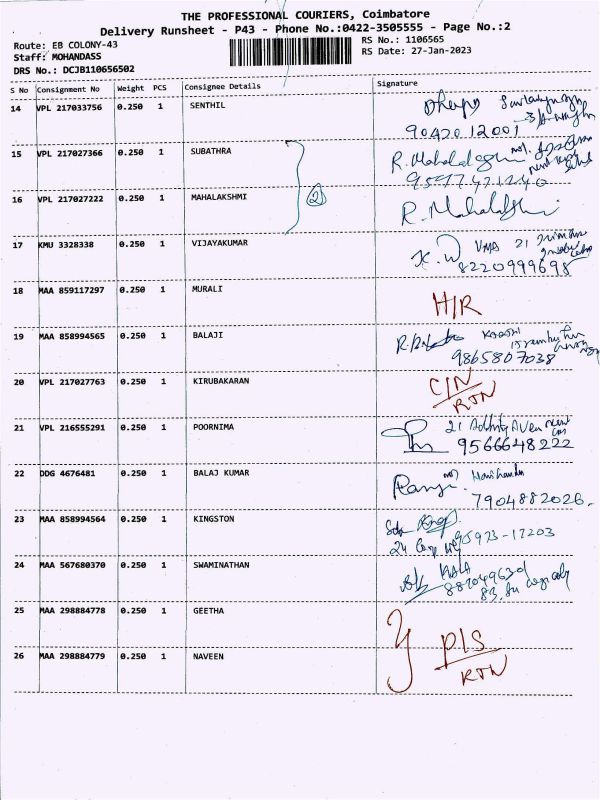 THE PROFESSIONAL COURIERS, Coimbatore
Delivery Runsheet - P43 - Phone No.:0422-3505555 - Page No.:2
Route: EB COLONY-43
RS No.: 1106565
Staff: MOHANDASS
RS Date: 27-Jan-2023
DRS No.: DCJB110656502
S No Consignment No Weight PCS Consignee Details Signature
14 VPL 217033756 0.250 1 SENTHIL
90420 12001
15 VPL 217027366 0.250 1 SUBATHRA R. Mahalakshmi
2
16 VPL 217027222 0.250 1 MAHALAKSHMI R. Mahalakshmi
17 KMU 3328338 0.250 1 VIJAYAKUMAR
8220999698
18 MAA 859117297 0.250 1 MURALI H/R
19 MAA 858994565 0.250 1 BALAJI
9865807038
20 VPL 217027763 0.250 1 KIRUBAKARAN C/N
RTN
21 VPL 216555291 0.250 1 POORNIMA 21
9566648222
22 DDG 4676481 0.250 1 BALAJ KUMAR
7904882026.
23 MAA 858994564 0.250 1 KINGSTON
95973-17203
24 MAA 567680370 0.250 1 SWAMINATHAN
25 MAA 298884778 0.250 1 GEETHA
26 MAA 298884779 0.250 1 NAVEEN P/S
RTN